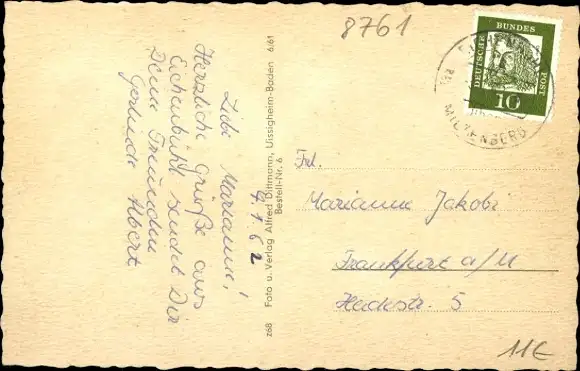 8761
DEUTSCHE BUNDES POST
10
MILTENBERG
4.1.62
Liebe Marianne!
Herzliche Grüße aus
Eichenbühl sendet Dir
Deine Freundin
Gertrude Albert
z68 Foto u. Verlag Alfred Dittmann, Uissigheim-Baden 6/61
Bestell-Nr. 6
Frl.
Marianne Jakobi
Frankfurt a/M
Heckstr. 5
11€